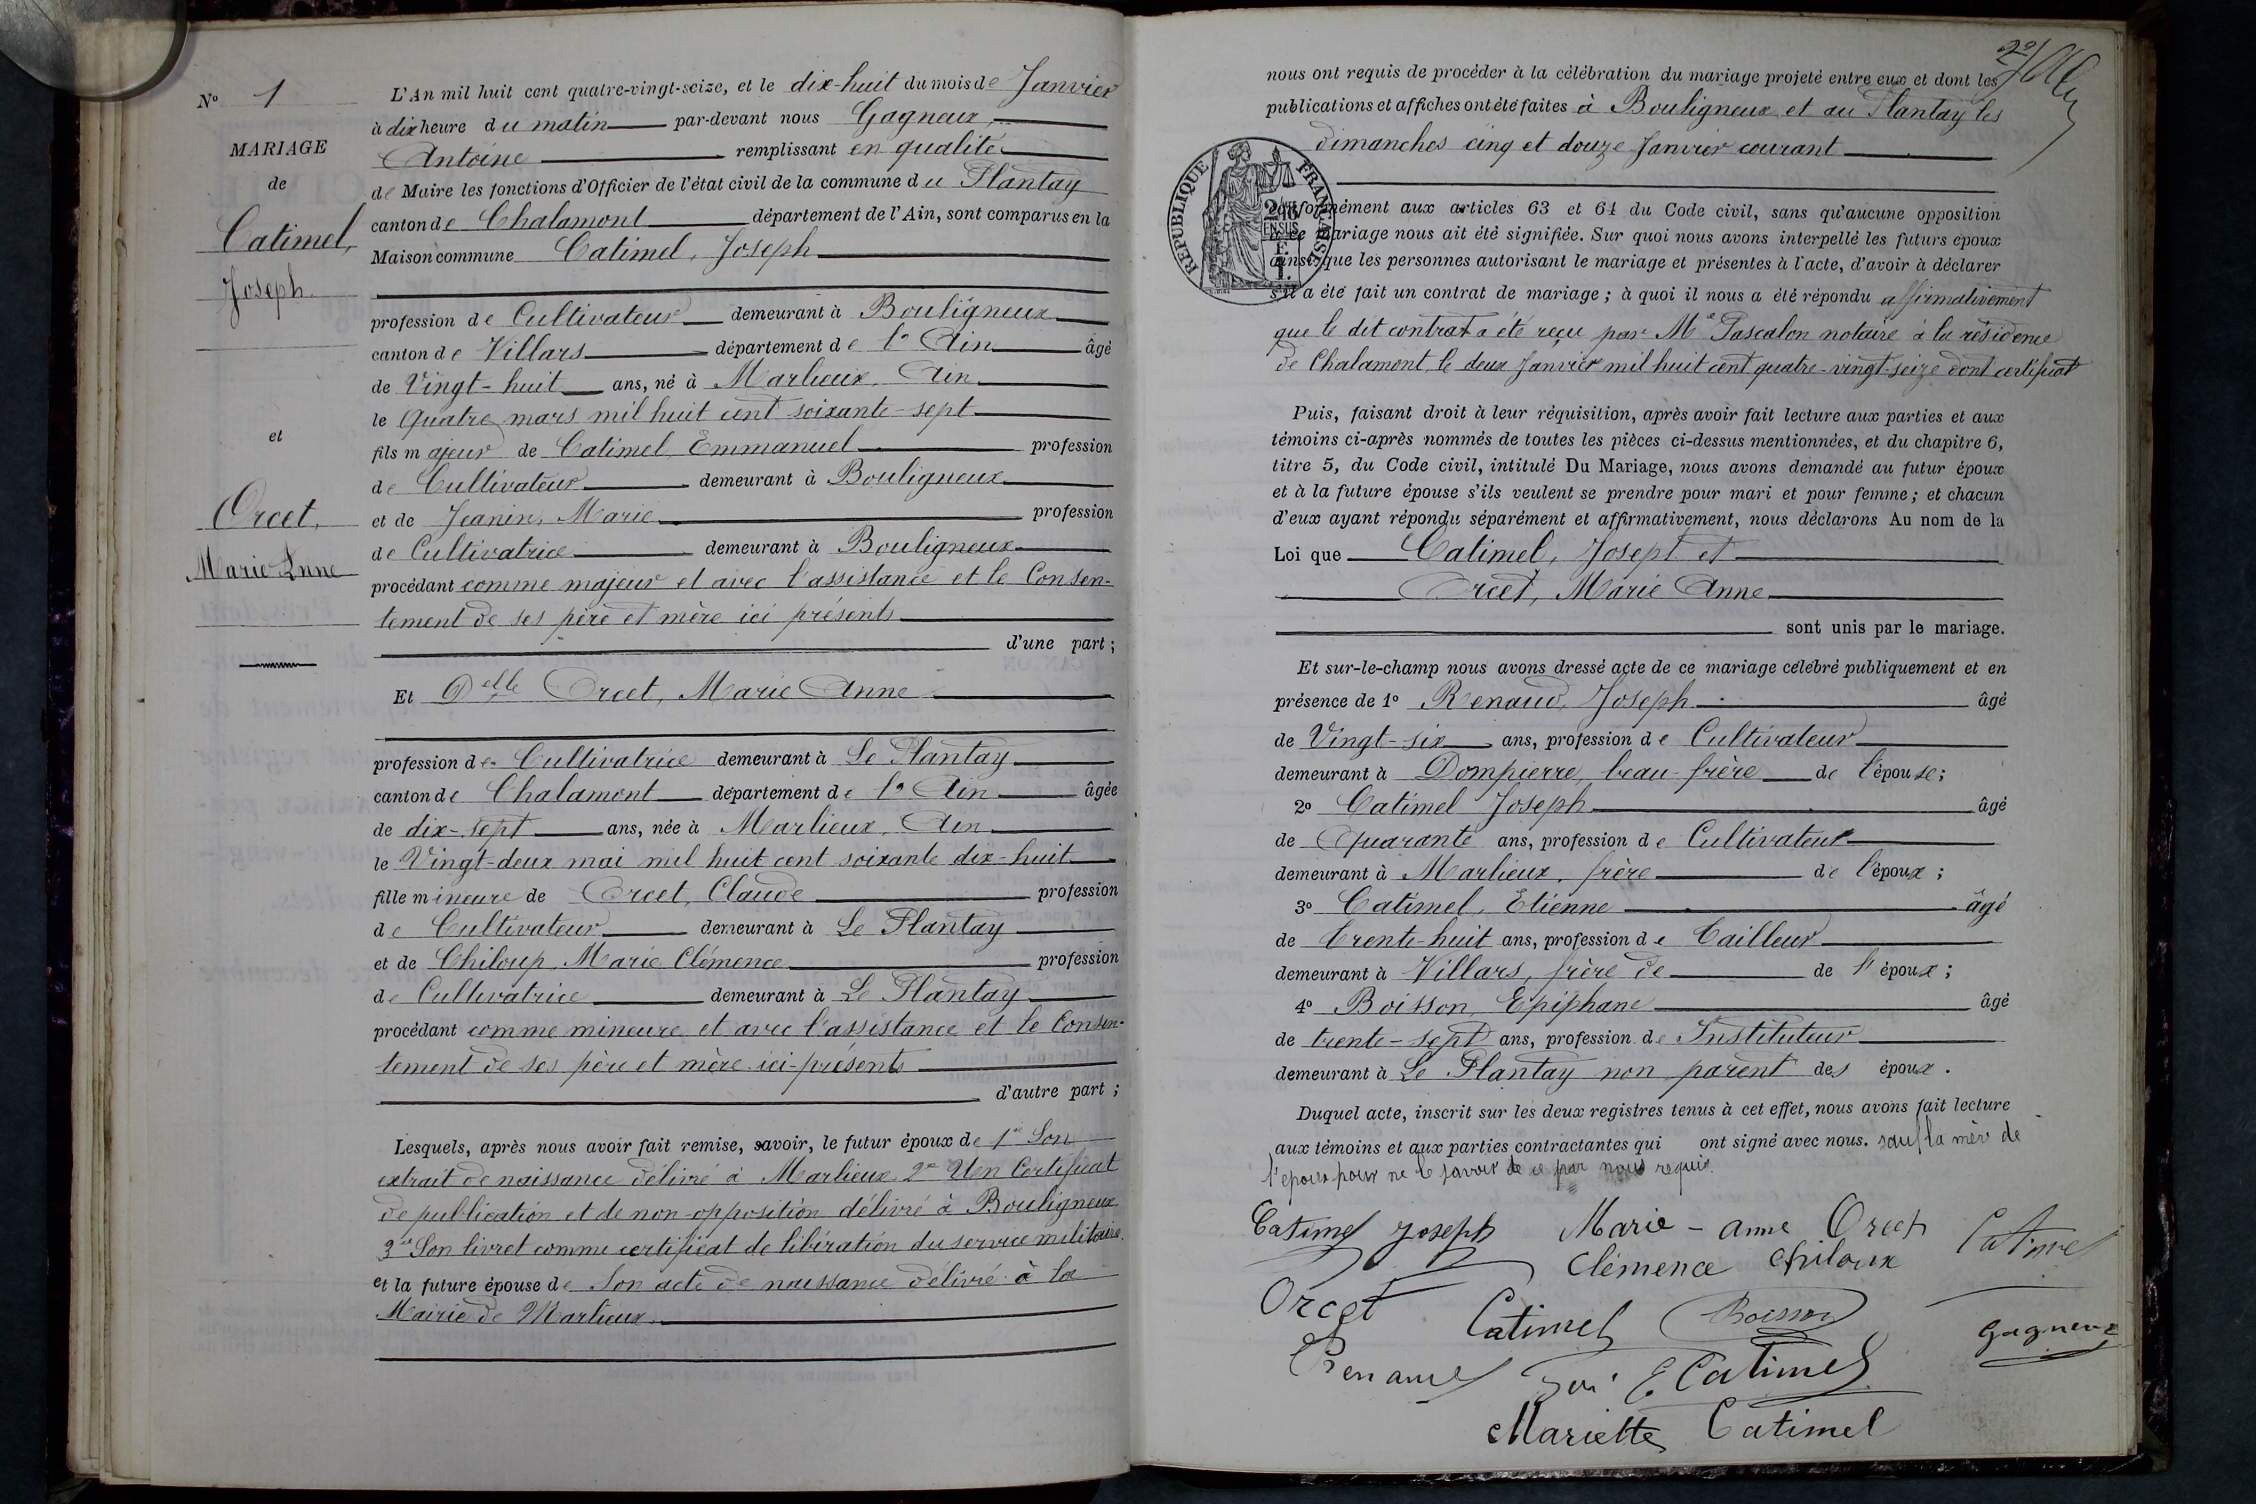 N° 1
MARIAGE
de
Catimel,
Joseph.
et
Orcet,
Marie Anne
L'An mil huit cent quatre-vingt-seize, et le dix-huit du mois de Janvier
à dix heure du matin par-devant nous Gagneux,
Antoine remplissant en qualité
de Maire les fonctions d'Officier de l'état civil de la commune du Plantay
canton de Chalamont département de l'Ain, sont comparus en la
Maison commune Catimel, Joseph
profession de Cultivateur demeurant à Bouligneux
canton de Villars département de l'Ain âgé
de Vingt-huit ans, né à Marlieux, Ain
le quatre mars mil huit cent soixante-sept
fils majeur de Catimel Emmanuel profession
de Cultivateur demeurant à Bouligneux
et de Jeanin, Marie profession
de Cultivatrice demeurant à Bouligneux
procédant comme majeur et avec l'assistance et le Consen-
tement de ses père et mère ici présents
d'une part ;
Et Delle Orcet, Marie Anne
profession de Cultivatrice demeurant à Le Plantay
canton de Chalamont département de l'Ain âgée
de dix-sept ans, née à Marlieux, Ain
le Vingt-deux mai mil huit cent soixante dix-huit
fille mineure de Orcet, Claude profession
de Cultivateur demeurant à Le Plantay
et de Chiloup, Marie Clémence profession
de Cultivatrice demeurant à Le Plantay
procédant comme mineure et avec l'assistance et le Consen-
tement de ses père et mère ici-présents
d'autre part ;
Lesquels, après nous avoir fait remise, savoir, le futur époux de 1° Son
extrait de naissance délivré à Marlieux 2° Un Certificat
de publication et de non-opposition délivré à Bouligneux
3° Son livret comme certificat de libération du service militaire.
et la future épouse de Son acte de naissance délivré à la
Mairie de Marlieux.
nous ont requis de procéder à la célébration du mariage projeté entre eux et dont les
publications et affiches ont été faites à Bouligneux et au Plantay les
dimanches cinq et douze Janvier courant
RÉPUBLIQUE FRANÇAISE
conformément aux articles 63 et 64 du Code civil, sans qu'aucune opposition
à ce mariage nous ait été signifiée. Sur quoi nous avons interpellé les futurs époux
ainsi que les personnes autorisant le mariage et présentes à l'acte, d'avoir à déclarer
s'il a été fait un contrat de mariage ; à quoi il nous a été répondu affirmativement
que le dit contrat a été reçu par Me Pascalon notaire à la résidence
de Chalamont, le deux Janvier mil huit cent quatre-vingt-seize dont certificat
Puis, faisant droit à leur réquisition, après avoir fait lecture aux parties et aux
témoins ci-après nommés de toutes les pièces ci-dessus mentionnées, et du chapitre 6,
titre 5, du Code civil, intitulé Du Mariage, nous avons demandé au futur époux
et à la future épouse s'ils veulent se prendre pour mari et pour femme ; et chacun
d'eux ayant répondu séparément et affirmativement, nous déclarons Au nom de la
Loi que Catimel, Joseph et
Orcet, Marie Anne
sont unis par le mariage.
Et sur-le-champ nous avons dressé acte de ce mariage célébré publiquement et en
présence de 1° Renaud, Joseph âgé
de Vingt-six ans, profession de Cultivateur
demeurant à Dompierre, beau-frère de l'épouse ;
2° Catimel Joseph âgé
de Quarante ans, profession de Cultivateur
demeurant à Marlieux, frère de l'époux ;
3° Catimel, Etienne âgé
de trente-huit ans, profession de Tailleur
demeurant à Villars, frère de de l'époux ;
4° Boisson, Epiphane âgé
de trente-sept ans, profession de Instituteur
demeurant à Le Plantay non parent des époux.
Duquel acte, inscrit sur les deux registres tenus à cet effet, nous avons fait lecture
aux témoins et aux parties contractantes qui ont signé avec nous. sauf la mère de
l'époux pour ne le savoir de ce par nous requis.
Catimel Joseph Marie-anne Orcet Catimel
Clémence Chiloux
Orcet Catimel Boisson Gagneux
Renaud E Catimel
Mariette Catimel